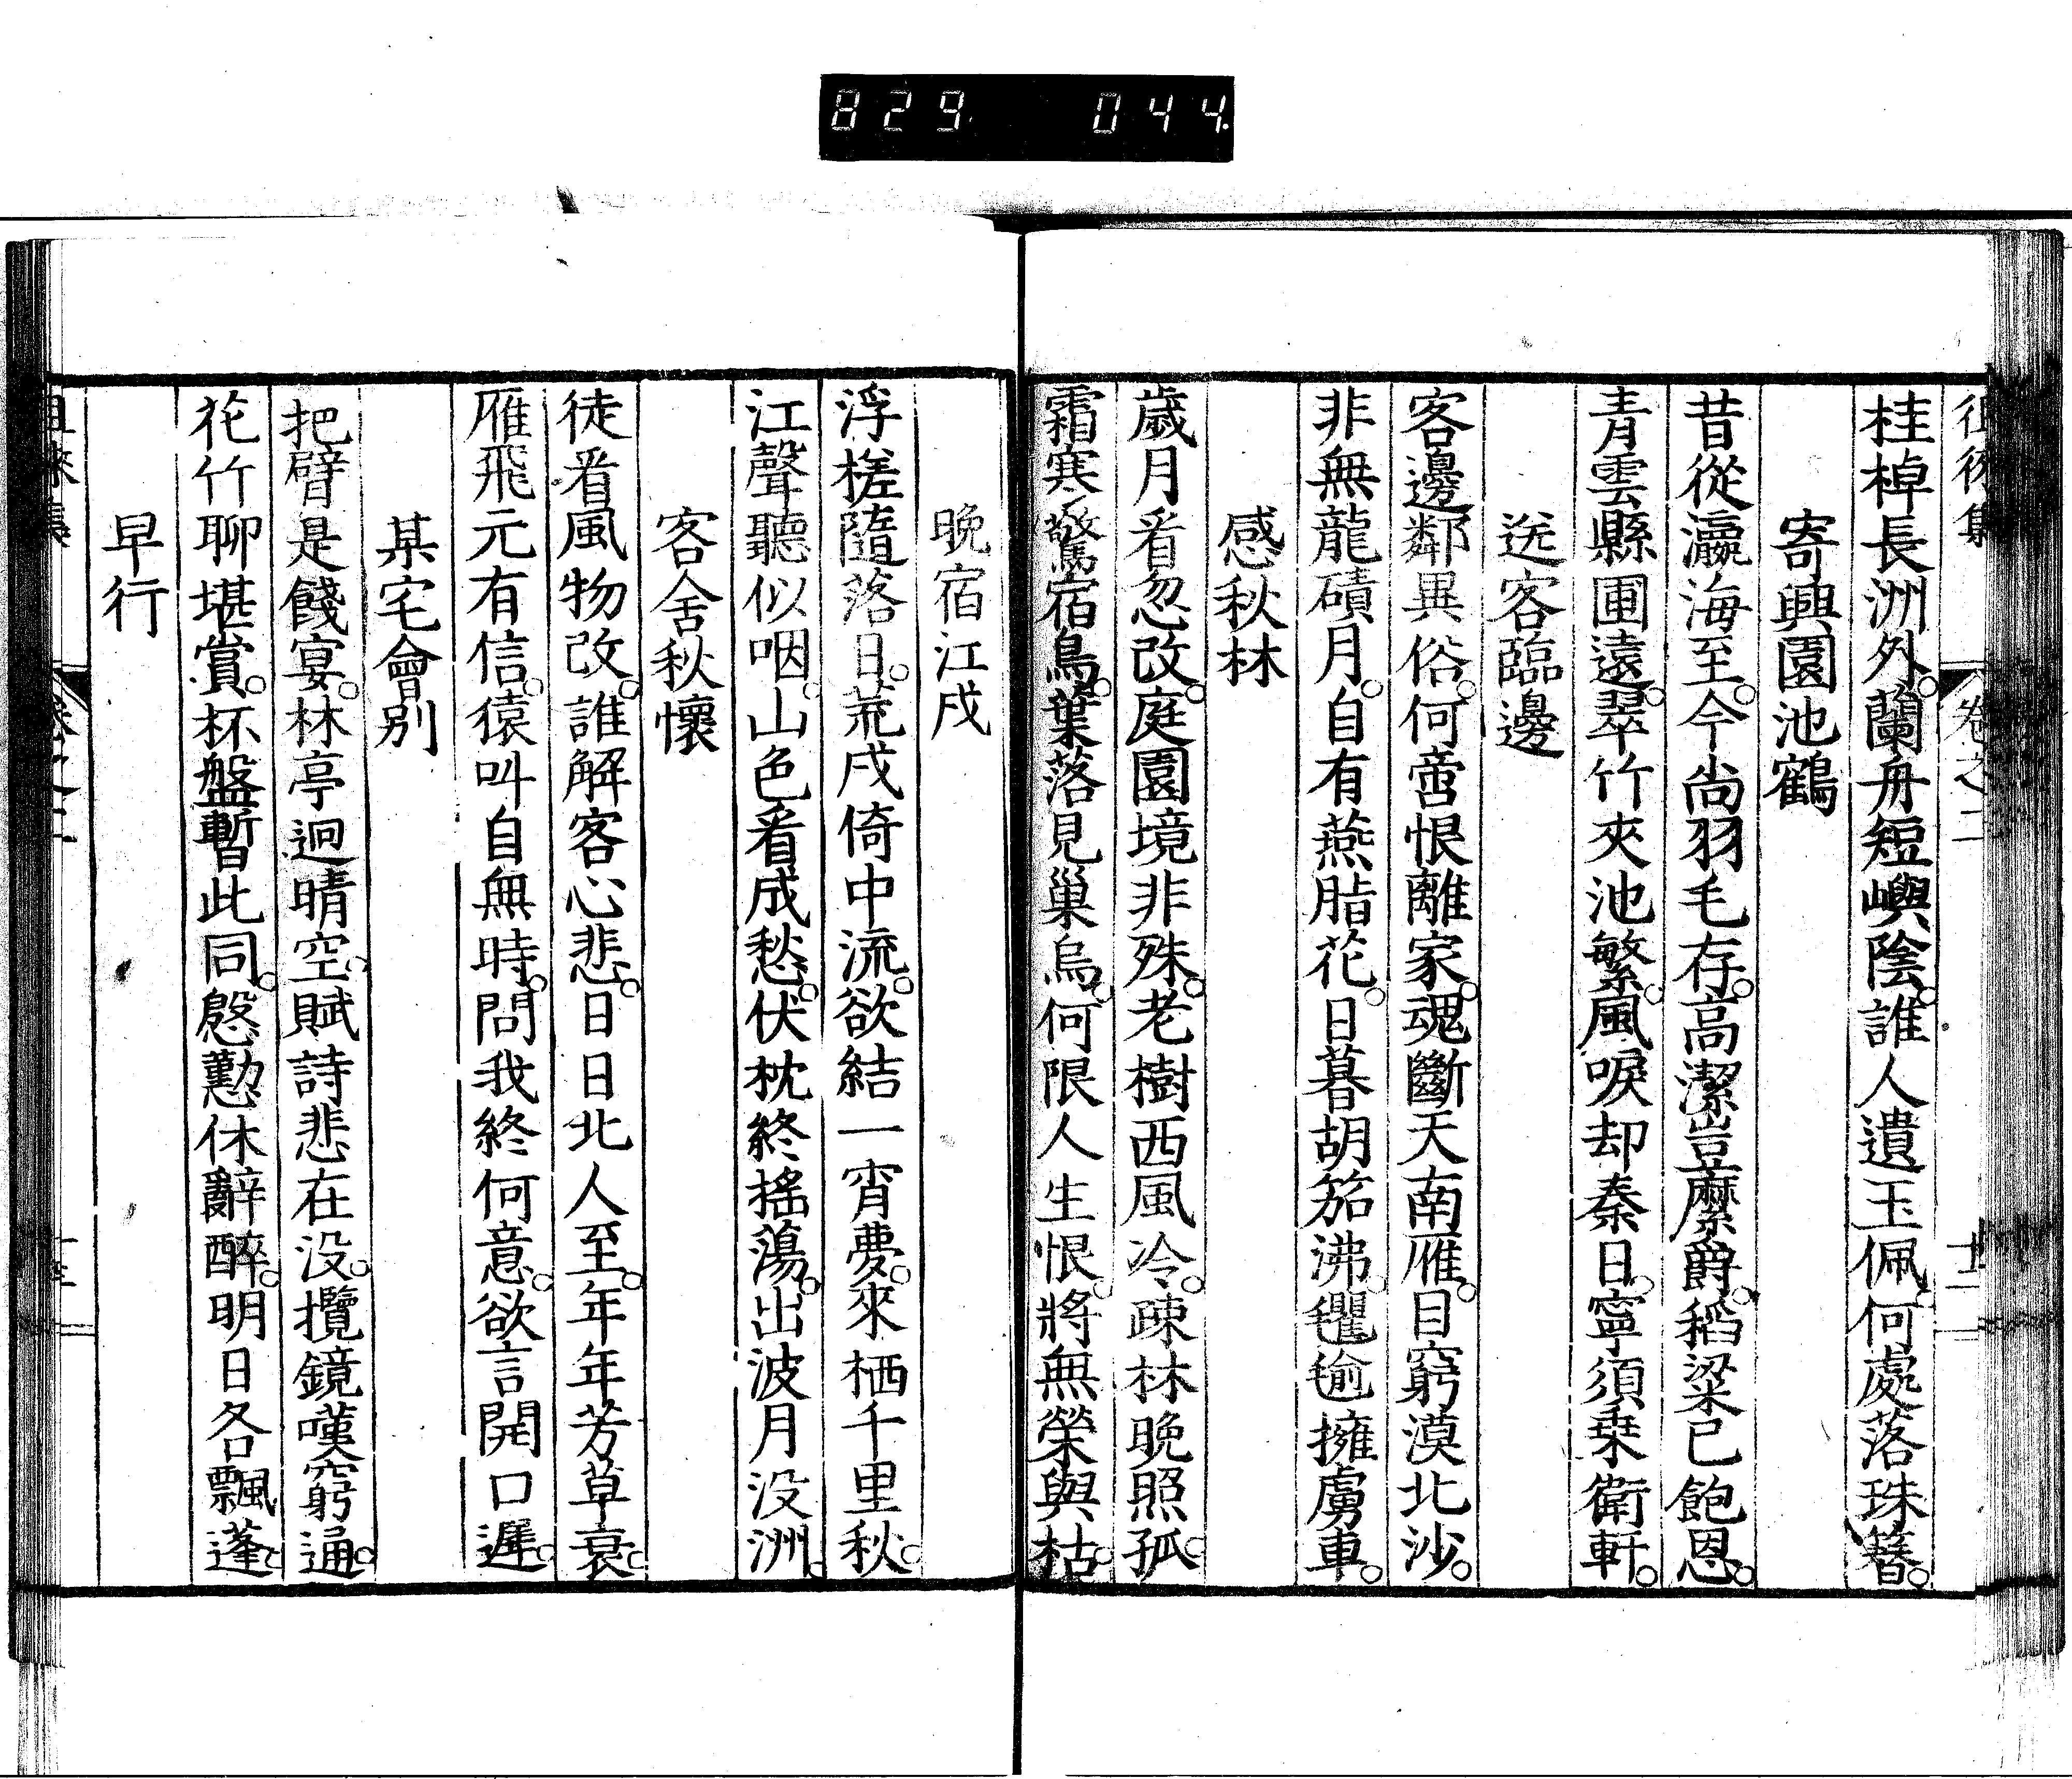 829 044
徂徠集 卷之二 十二
桂棹長洲外。蘭舟短嶼陰。誰人遺玉佩。何處落珠簪。
寄興園池鶴
昔從瀛海至。今尚羽毛存。高潔豈縻爵。稻粱已飽恩。
青雲縣圃遠。翠竹夾池繁。風唳却秦日。寧須乗衛軒。
送客臨邊
客邊鄰異俗。何啻恨離家。魂斷天南雁。目窮漠北沙。
非無龍磧月。自有燕脂花。日暮胡笳沸。氍毹擁虜車。
感秋林
歲月看忽改。庭園境非殊。老樹西風冷。疎林晩照孤。
霜寒驚宿鳥。葉落見巢烏。何限人生恨。將無榮與枯。
晩宿江戍
浮槎隨落日。荒戍倚中流。欲結一宵夢。來栖千里秋。
江聲聽似咽。山色看成愁。伏枕終搖蕩。出波月没洲。
客舍秋懷
徒看風物改。誰解客心悲。日日北人至。年年芳草衰。
雁飛元有信。猿叫自無時。問我終何意。欲言開口遲。
某宅會別
把臂是餞宴。林亭迥晴空。賦詩悲在没。攬鏡嘆窮通。
花竹聊堪賞。杯盤暫此同。慇懃休辭醉。明日各飄蓬。
早行